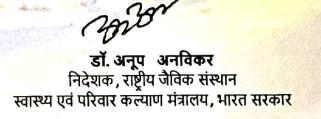 डॉ. अनूप अनविकर
निदेशक, राष्ट्रीय जैविक संस्थान
स्वास्थ्य एवं परिवार कल्याण मंत्रालय, भारत सरकार